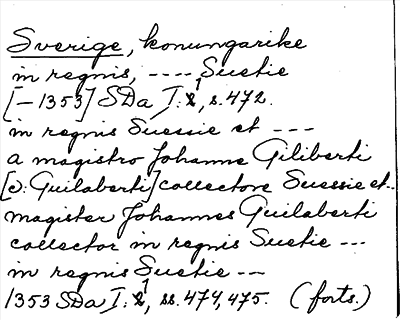 Sverige, konungarike
in regnis, ---- Suetie
[-1353] SDa I:1, s. 472.
in regnis Suessie et ---
a magistro Johanne Giliberti
[ɔ: Guilaberti] collectore Suessie et..
magister Johannes Guilaberti
collector in regnis Suetie ---
in regnis Suetie --
1353 SDa I:1, ss. 474, 475. (forts.)